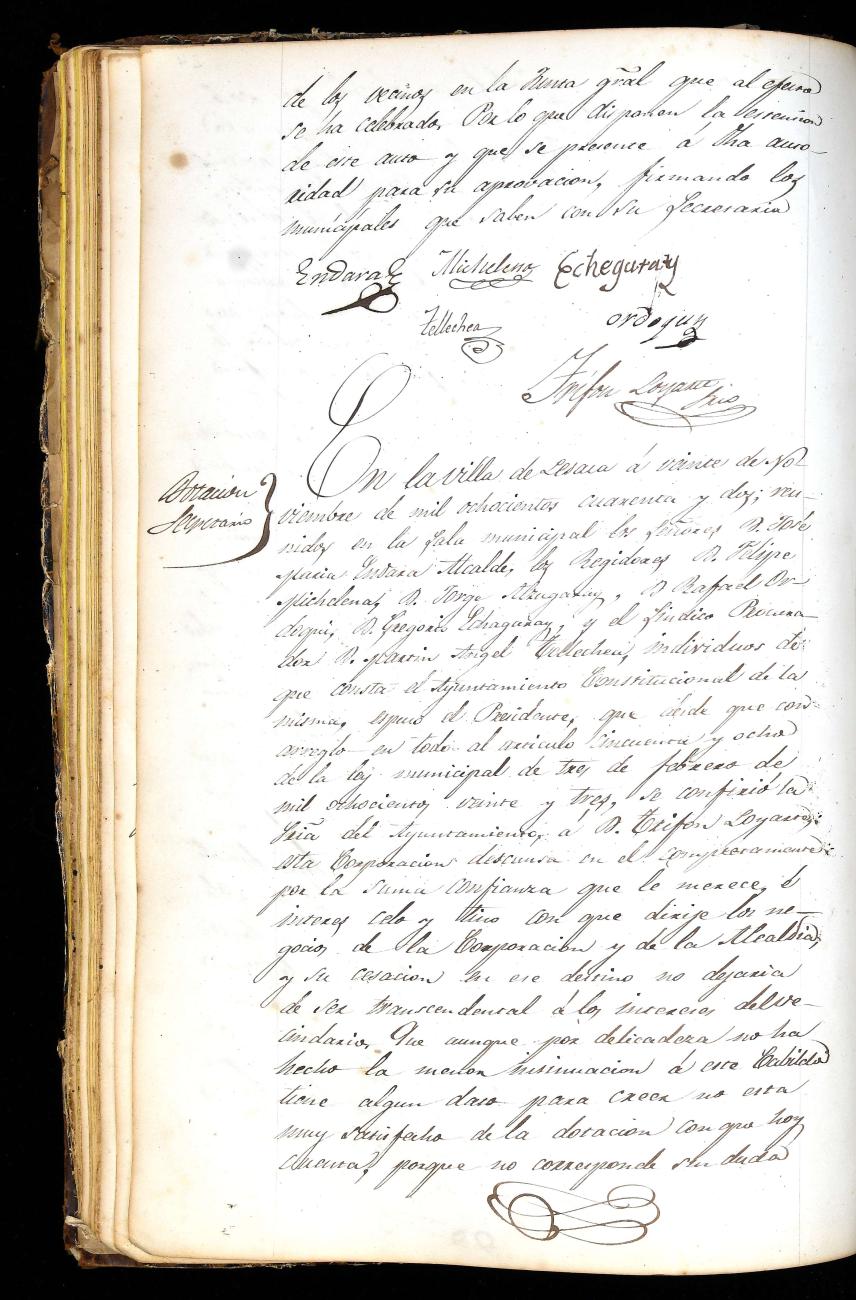 de los vecinos en la Junta gral que al efecto
se ha celebrado. Por lo que disponen la estension
de este auto y que se presente á dha auto-
ridad para su aprovacion, firmando los
municipales que saben con su Secretario
Endara Michelena Echegaray
Tellechea Ordoqui
Trifon Loyarte
Srio
Dotacion
Secretario
En la villa de Lesaca á veinte de No-
viembre de mil ochocientos cuarenta y dos; reu-
nidos en la Sala municipal los Señores D. José
Maria Endara Alcalde, los Regidores D. Felipe
Michelena, D. Jorge D. Rafael Or-
doqui, D. Gregorio Echagaray, y el Sindico Procura-
dor D. Martin Angel Tellechea, individuos de
que consta el Ayuntamiento Constitucional de la
misma, espuso el Presidente, que desde que con
arreglo en todo al articulo cincuenta y ocho
de la ley municipal de tres de febrero de
mil ochocientos veinte y tres, se confirió la
Sria del Ayuntamiento, á D. Trifon Loyarte,
esta Corporacion descansa en el completamente
por la suma confianza que le merece, é
interes celo y tino con que dirije los ne-
gocios de la Corporacion y de la Alcaldia,
y su cesacion en ese destino no dejaria
de ser transcendental á los intereses del ve-
cindario. Que aunque por delicadeza no ha
hecho la menor insinuacion á este Cabildo
tiene algun dato para creer no esta
muy satisfecho de la dotacion con que hoy
cuenta, porque no corresponde sin duda